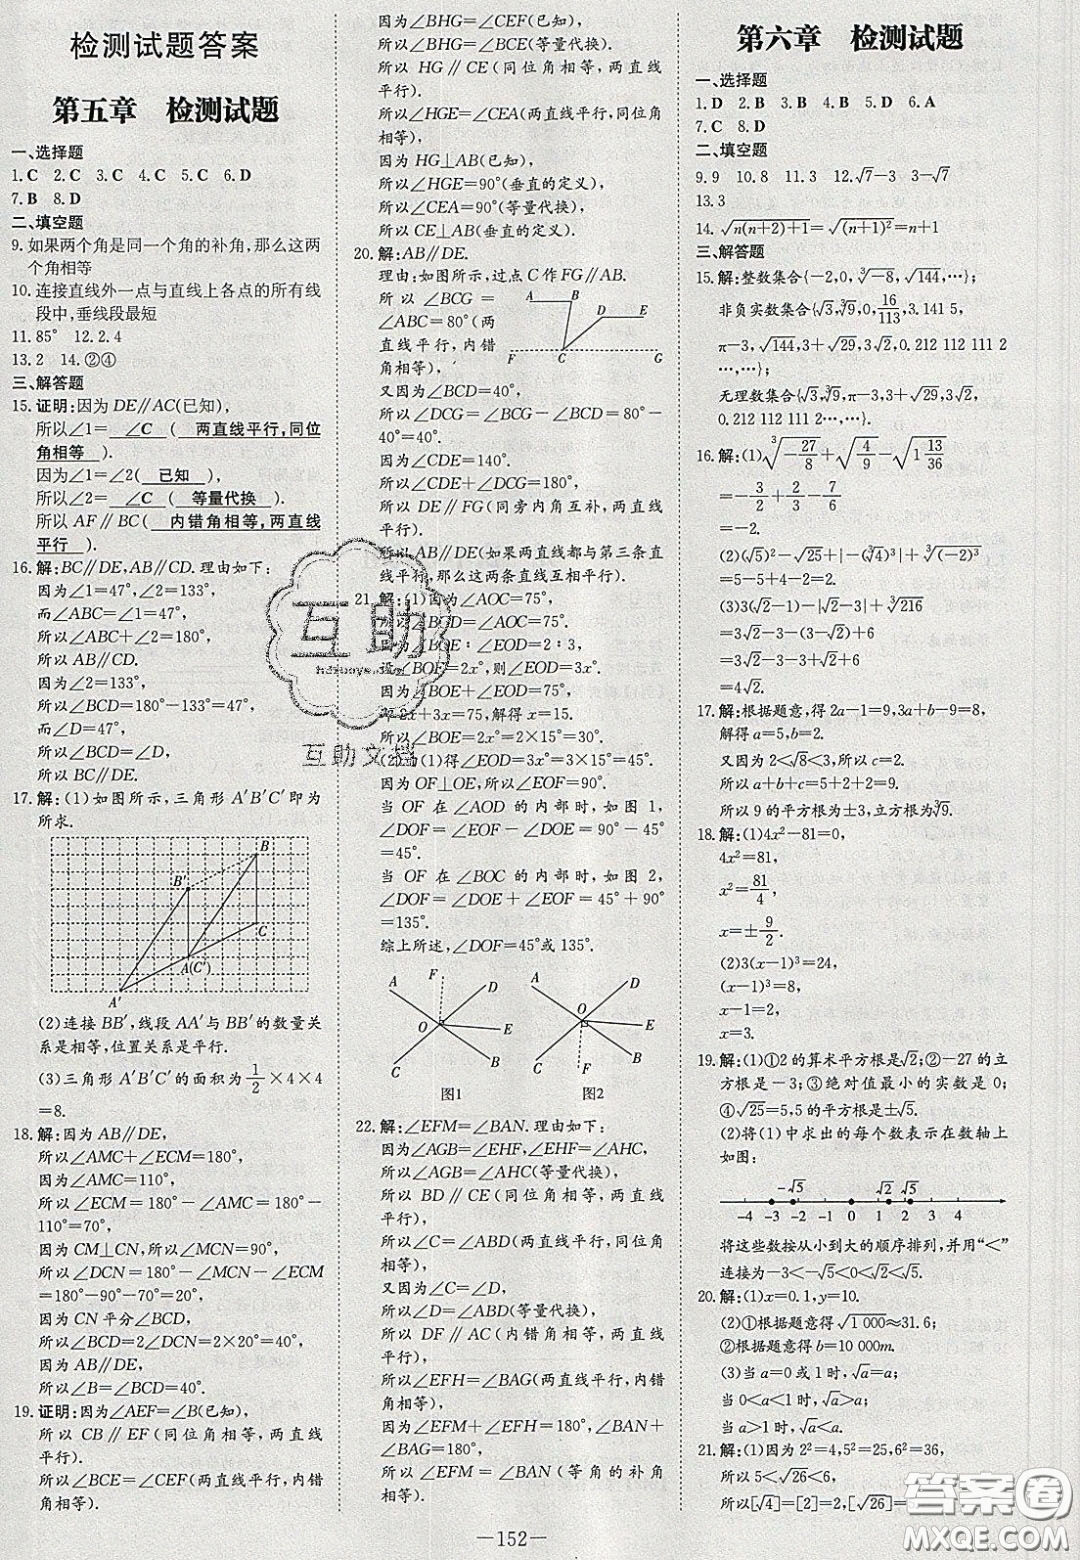 检测试题答案
第五章 检测试题
一、选择题
1.C 2.C 3.C 4.C 5.C 6.D
7.B 8.D
二、填空题
9.如果两个角是同一个角的补角,那么这两
个角相等
10.连接直线外一点与直线上各点的所有线
段中,垂线段最短
11.85° 12.2.4
13.2 14.②④
三、解答题
15.证明:因为DE∥AC(已知),
所以∠1= ∠C ( 两直线平行,同位
角相等 ).
因为∠1=∠2( 已知 ).
所以∠2= ∠C ( 等量代换 ).
所以AF∥BC( 内错角相等,两直线
平行 ).
16.解:BC∥DE,AB∥CD.理由如下:
因为∠1=47°,∠2=133°,
而∠ABC=∠1=47°,
所以∠ABC+∠2=180°,
所以AB∥CD.
因为∠2=133°,
所以∠BCD=180°-133°=47°,
而∠D=47°,
所以∠BCD=∠D,
所以BC∥DE.
17.解:(1)如图所示,三角形A′B′C′即为
所求.
B
B′
C
A(C′)
A′
(2)连接BB′,线段AA′与BB′的数量关
系是相等,位置关系是平行.
(3)三角形A′B′C′的面积为1/2×4×4
=8.
18.解:因为AB∥DE,
所以∠AMC+∠ECM=180°,
因为∠AMC=110°,
所以∠ECM=180°-∠AMC=180°-
110°=70°,
因为CM⊥CN,所以∠MCN=90°,
所以∠DCN=180°-∠MCN-∠ECM=
180°-90°-70°=20°,
因为CN平分∠BCD,
所以∠BCD=2∠DCN=2×20°=40°,
因为AB∥DE,
所以∠B=∠BCD=40°.
19.证明:因为∠AEF=∠B(已知),
所以CB∥EF(同位角相等,两直线平
行).
所以∠BCE=∠CEF(两直线平行,内错
角相等).
因为∠BHG=∠CEF(已知),
所以∠BHG=∠BCE(等量代换).
所以HG∥CE(同位角相等,两直线
平行).
所以∠HGE=∠CEA(两直线平行,同位角
相等),
因为HG⊥AB(已知),
所以∠HGE=90°(垂直的定义),
所以∠CEA=90°(等量代换),
所以CE⊥AB(垂直的定义).
20.解:AB∥DE.
理由:如图所示,过点C作FG∥AB,
所以∠BCG=
∠ABC=80°(两
直线平行,内错
角相等).
A B
D E
F C G
又因为∠BCD=40°,
所以∠DCG=∠BCG-∠BCD=80°-
40°=40°.
因为∠CDE=140°,
所以∠CDE+∠DCG=180°,
所以DE∥FG(同旁内角互补,两直线
平行).
所以AB∥DE(如果两直线都与第三条直
线平行,那么这两条直线互相平行).
21.解:(1)因为∠AOC=75°,
所以∠BOD=∠AOC=75°.
因为∠BOE∶∠EOD=2∶3,
设∠BOE=2x°,则∠EOD=3x°.
因为∠BOE+∠EOD=75°,
即2x+3x=75,解得x=15.
所以∠BOE=2x°=2×15°=30°.
(2)由(1)得∠EOD=3x°=3×15°=45°.
因为OF⊥OE,所以∠EOF=90°.
当OF在∠AOD的内部时,如图1,
∠DOF=∠EOF-∠DOE=90°-45°
=45°.
当OF在∠BOC的内部时,如图2,
∠DOF=∠EOF+∠DOE=45°+90°
=135°.
综上所述,∠DOF=45°或135°.
F
A D
O E
C B
图1
A D
O E
C F B
图2
22.解:∠EFM=∠BAN.理由如下:
因为∠AGB=∠EHF,∠EHF=∠AHC,
所以∠AGB=∠AHC(等量代换),
所以BD∥CE(同位角相等,两直线
平行),
所以∠C=∠ABD(两直线平行,同位角
相等),
又因为∠C=∠D,
所以∠D=∠ABD(等量代换),
所以DF∥AC(内错角相等,两直线
平行),
所以∠EFH=∠BAG(两直线平行,内错
角相等),
因为∠EFM+∠EFH=180°,∠BAN+
∠BAG=180°,
所以∠EFM=∠BAN(等角的补角
相等).
第六章 检测试题
一、选择题
1.D 2.B 3.B 4.B 5.D 6.A
7.C 8.D
二、填空题
9.9 10.8 11.3 12.√7-3 3-√7
13.3
14.√(n(n+2)+1)=√((n+1)²)=n+1
三、解答题
15.解:整数集合{-2,0,∛-8,√144,…};
非负实数集合{√3,∛9,0,16/113,3.141 5,
π-3,√144,3+√29,3√2,0.212 112 111 2
…,…};
无理数集合{√3,∛9,π-3,3+√29,3√2,
0.212 112 111 2…,…}.
16.解:(1)∛(-27/8)+√(4/9)-√(1 13/36)
=-3/2+2/3-7/6
=-2.
(2)(√5)²-√25+|-(∛4)³|+∛((-2)³)
=5-5+4-2=2.
(3)3(√2-1)-|√2-3|+∛216
=3√2-3+(√2-3)+6
=3√2-3+√2-3+6
=4√2.
17.解:根据题意,得2a-1=9,3a+b-9=8,
解得a=5,b=2.
又因为2<√8<3,所以c=2.
所以a+b+c=5+2+2=9.
所以9的平方根为±3,立方根为∛9.
18.解:(1)4x²-81=0,
4x²=81,
x²=81/4,
x=±9/2.
(2)3(x-1)³=24,
(x-1)³=8,
x-1=2,
x=3.
19.解:(1)①2的算术平方根是√2;②-27的立
方根是-3;③绝对值最小的实数是0;
④√25=5,5的平方根是±√5.
(2)将(1)中求出的每个数表示在数轴上
如图:
-√5 √2 √5
-4 -3 -2 -1 0 1 2 3 4
将这些数按从小到大的顺序排列,并用“<”
连接为-3<-√5<0<√2<√5.
20.解:(1)x=0.1,y=10.
(2)①根据题意得√1000≈31.6;
②根据题意得b=10 000m.
(3)当a=0或1时,√a=a;
当0<a<1时,√a>a;
当a>1时,√a<a.
21.解:(1)因为2²=4,5²=25,6²=36,
所以5<√26<6,
所以[√4]=[2]=2,[√26]=
—152—
互助
互助文档
答案圈
MXQE.COM